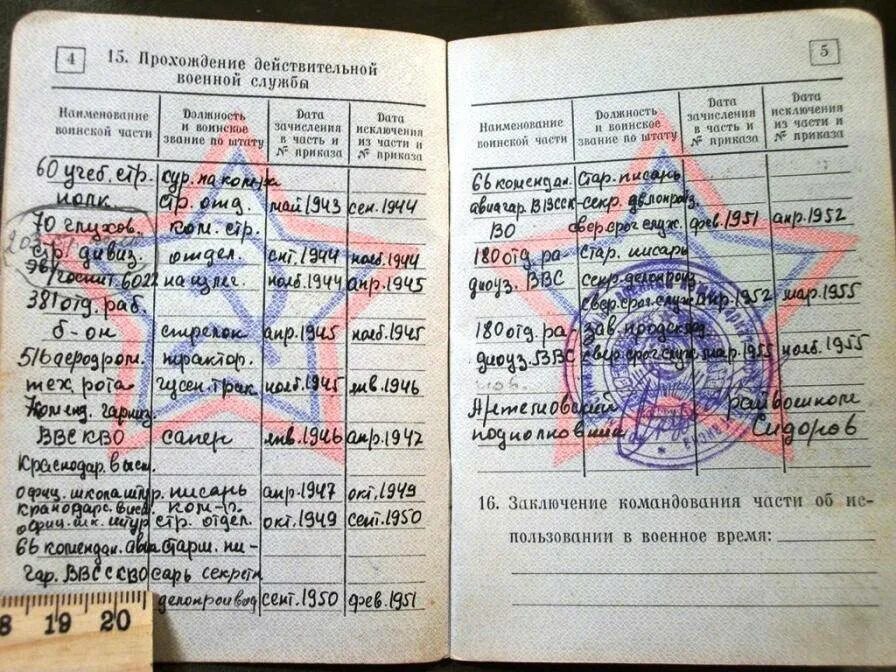 4
15. Прохождение действительной
военной службы
Наименование воинской части
Должность и воинское звание по штату
Дата зачисления в часть и № приказа
Дата исключения из части и № приказа
60 учеб. стр. кур. пулком.
полк. стр. отд. май 1943 сен. 1944
70 глухов. ком. стр.
стр. дивиз. отдел. снт. 1944 нояб. 1944
госпит. 6022 на излеч. нояб. 1944 апр. 1945
381 отд. раб.
б-он стрелок апр. 1945 нояб. 1945
516 аеродром. трактор.
тех. рота гусен. трак нояб. 1945 янв. 1946
коменд. гарниз.
ВВСКВО сапер янв. 1946 апр. 1947
Краснодар. высш.
офиц. школа штур. писарь апр. 1947 окт. 1949
ком-р.
офиц. шк. штур стр. отдел. окт. 1949 сент. 1950
66 комендан. авиа Старш. пи-
гар. ВВССКВО сарь секрет
делопроизвод сент. 1950 фев. 1951
8 19 20
5
Наименование воинской части
Должность и воинское звание по штату
Дата зачисления в часть и № приказа
Дата исключения из части и № приказа
66 комендан. Стар. писарь
авиагар. ВВССК- секр. делопроиз.
ВО сверсрочслуж. фев. 1951 апр. 1952
180 отд. ра- Стар. писарь
диоуз. ВВС секр. делопроиз
сверсрочслуж апр. 1952 мар. 1955
180 отд. ра- зав. продскл.
диоуз. ВВС сверсрочслуж мар. 1955 нояб. 1955
Артемовский райвоенком
подполковник Сидоров
16. Заключение командования части об ис-
пользовании в военное время: